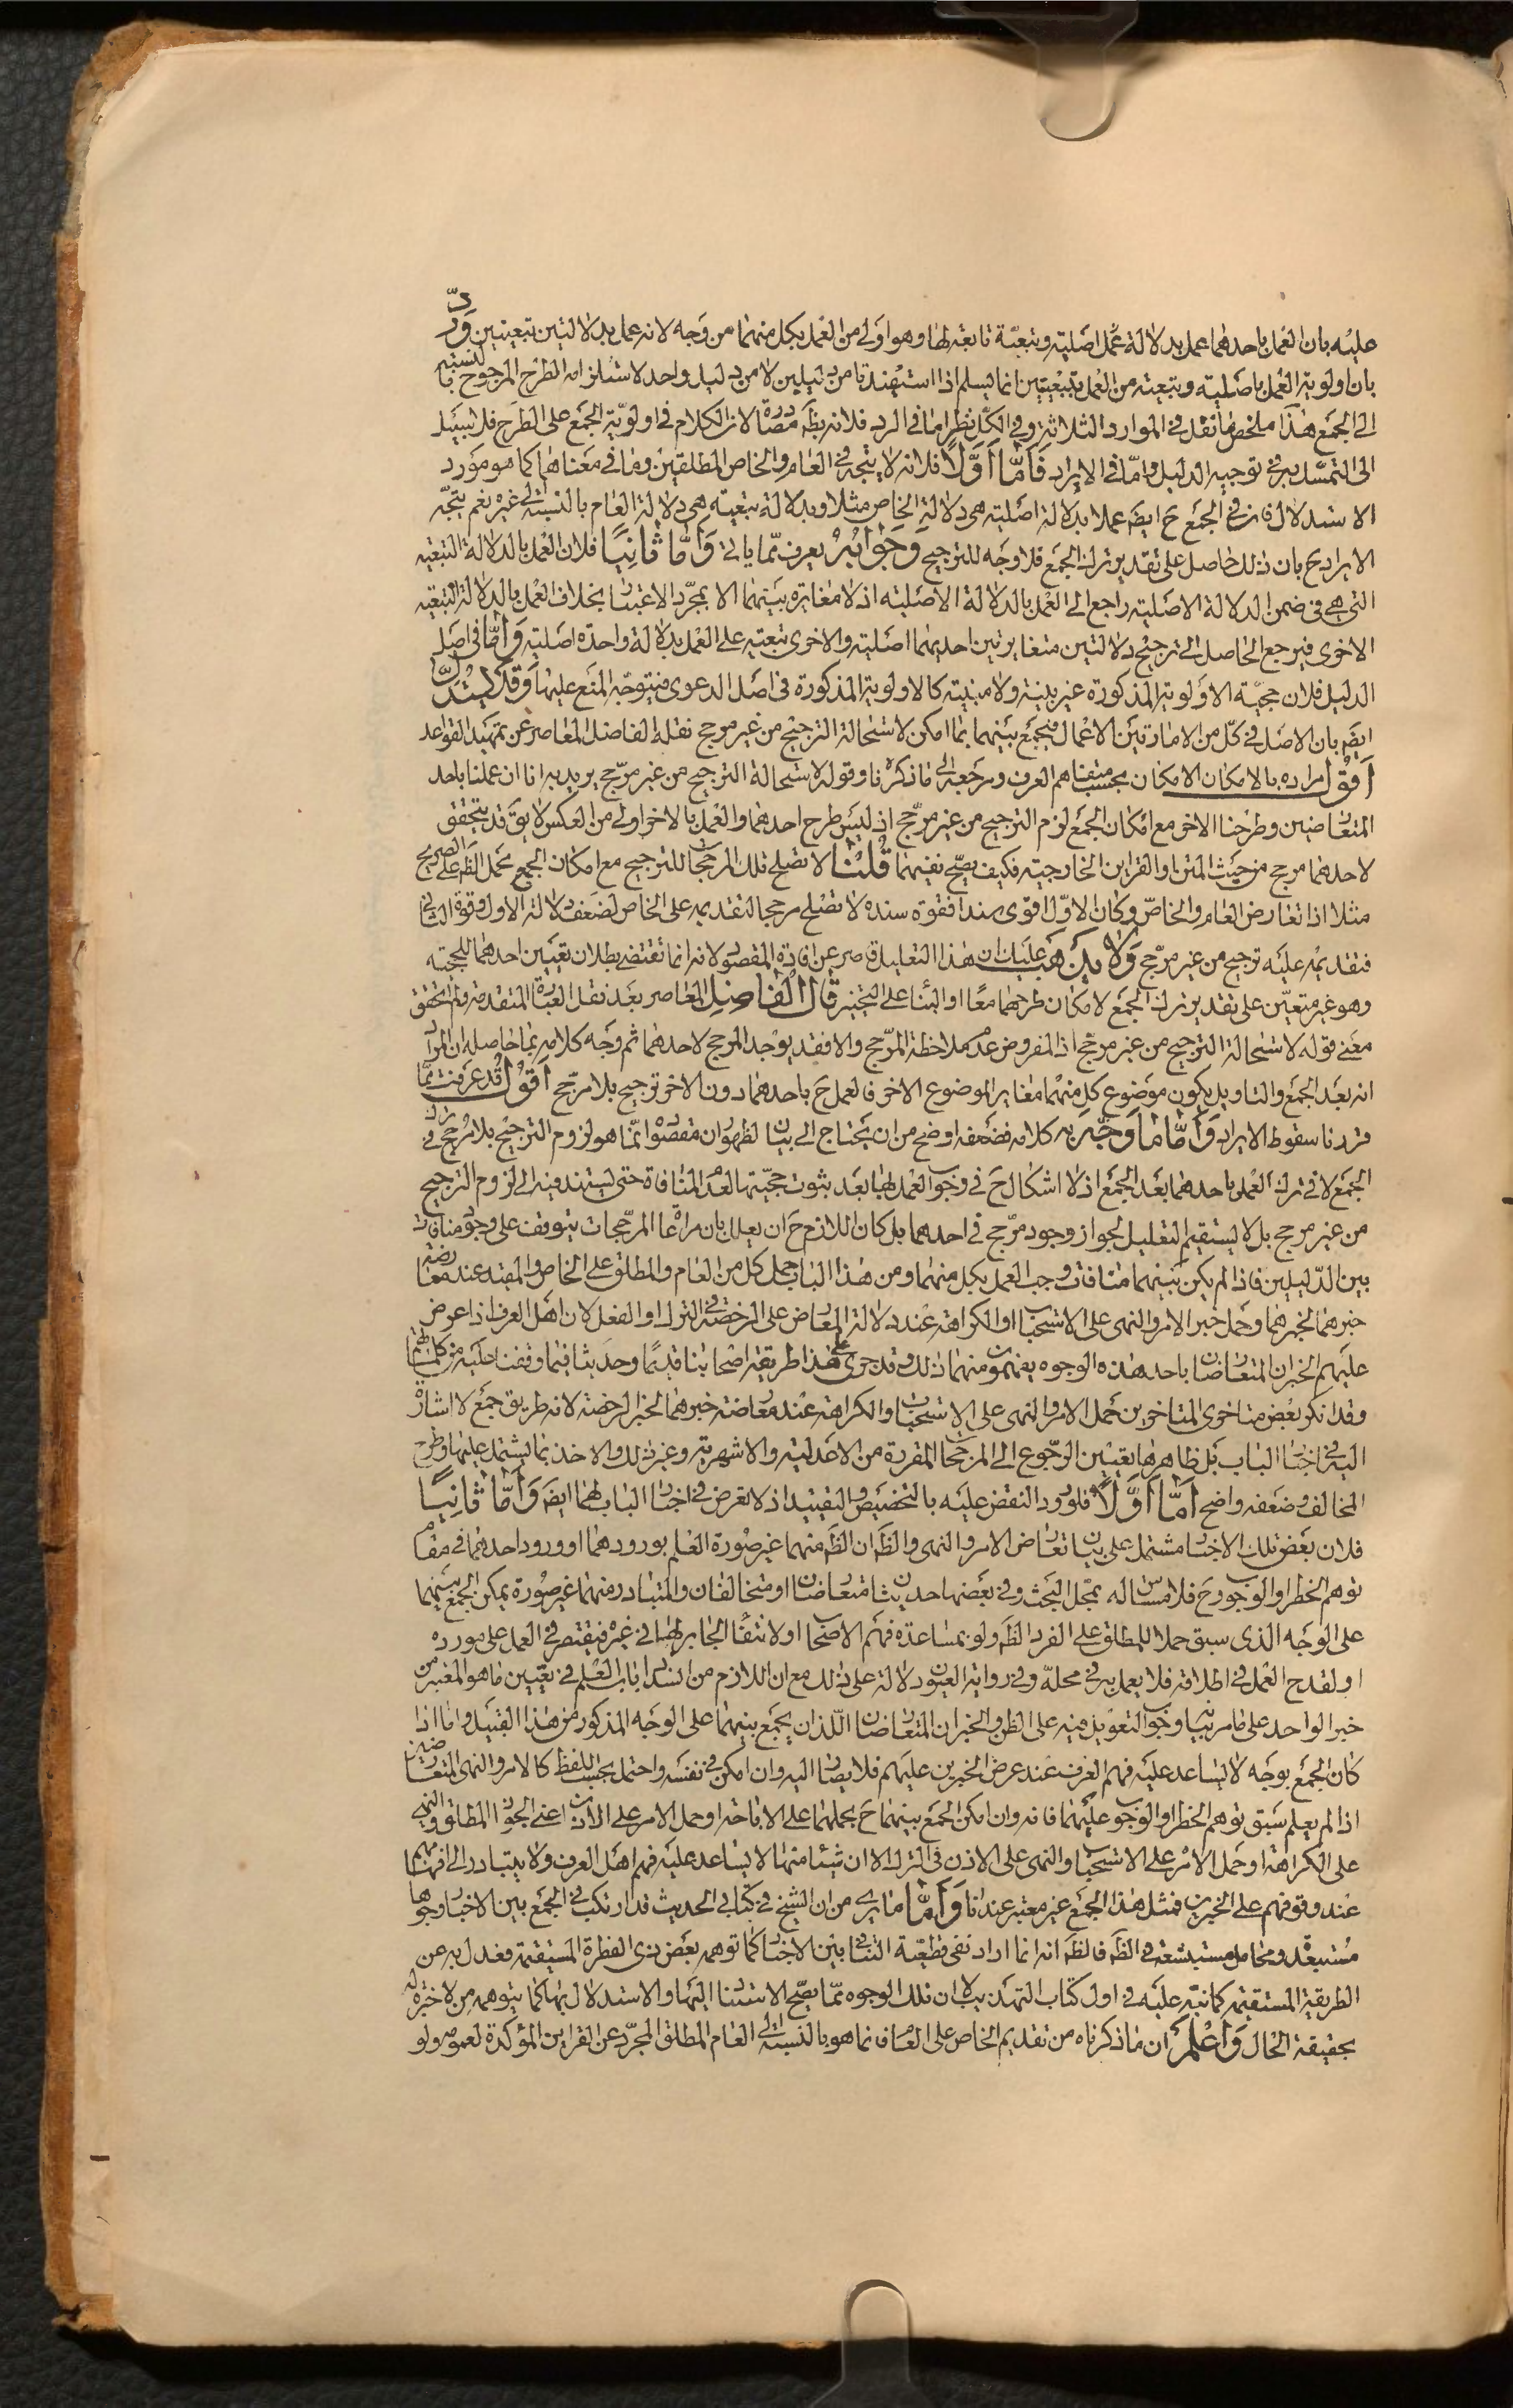 عليه بان العمل باحدهما عمل بدلالة عمل اصلية وتبعية تابعة لها وهو اولى من العمل بكل منهما من وجه لانه عمل بدلالتين تبعيتين وردّ
بان اولوية العمل باصلية وتبعية من العمل بتبعيتين انما يسلم اذا استفيدتا من دليلين لا من دليل واحد لاستلزامه الطرح المرجوح بالنسبة
الى الجمع هذا ملخص ما نقل في الموارد الثلاثة وفي الكل نظر اما في الرد فلانه بظه مصادرة لان الكلام في اولوية الجمع على الطرح فلا سبيل
الى التمسك به في توجيه الدليل واما في الايراد فَأمّا أوّلاً فلانه لا يتجه في العام والخاص المطلقين وما في معناهما كما هو مورد
الاستدلال فان في الجمع ح ايضا عملا بدلالة اصلية هي دلالة الخاص مثلا وبدلالة تبعية هي دلالة العام بالنسبة الى غيره نعم يتجه
الايراد ح بان ذلك حاصل على تقدير ترك الجمع فلا وجه للترجيح وجَوابُهُ يعرف مما ياتي وَأمّا ثانِيًا فلان العمل بالدلالة التبعية
التي هي في ضمن الدلالة الاصلية راجع الى العمل بالدلالة الاصلية اذ لا مغايرة بينهما الا بمجرد الاعتبار بخلاف العمل بالدلالة التبعية
الاخرى فيرجع الحاصل الى ترجيح دلالتين متغايرتين احديهما اصلية والاخرى تبعية على العمل بدلالة واحدة اصلية وَأمّا في اصل
الدليل فلان حجية الاولوية المذكورة غير بينة ولا مبينة كالاولوية المذكورة في اصل الدعوى فيتوجه المنع عليها وَقَد يُستدلّ
ايضا بان الاصل في كل من الامارتين الاعمال فيجمع بينهما بما امكن لاستحالة الترجيح من غير مرجح نقله الفاضل المعاصر عن تمهيد القواعد
أقُول مراده بالامكان الامكان بحسب متفاهم العرف ومرجعه الى ما ذكرنا وقوله لاستحالة الترجيح من غير مرجح يريد به انا ان عملنا باحد
المتعارضين وطرحنا الاخر مع امكان الجمع لزم الترجيح من غير مرجح اذ ليس طرح احدهما والعمل بالاخر اولى من العكس لا يق قد يتحقق
لاحدهما مرجح من حيث المتن او القراين الخارجية فكيف يصح نفيهما قُلنا لا تصلح تلك المرجحات للترجيح مع امكان الجمع بحمل الظه على الصريح
مثلا اذا تعارض العام والخاص وكان الاول اقوى سندا فقوة سنده لا تصلح مرجحا لتقديمه على الخاص لضعف دلالة الاول وقوة الثاني
فتقديمه عليه ترجيح من غير مرجح وَلا يذهَب عليك ان هذا التعليل قاصر عن افادة المقصود لانه انما تقتضي بطلان تعيين احدهما للحجية
وهو غير متعين على تقدير ترك الجمع لامكان طرحهما معا او البناء على التخيير قال الفاضل المعاصر بعد نقل العبارة المتقدمة ولم اتحقق
معنى قوله لاستحالة الترجيح من غير مرجح اذ المفروض عدم ملاحظة المرجح والا فقد يوجد المرجح لاحدهما ثم وجه كلامه بما حاصله ان المراد
انه بعد الجمع والتاويل يكون موضوع كل منهما مغاير الموضوع الاخر فالعمل ح باحدهما دون الاخر ترجيح بلا مرجح أقُول قد عرفت مما
قررنا سقوط الايراد وَأمّا ما وَجّه به كلامه فضعفه اوضح من ان يحتاج الى بيان لظهور ان مقصوده انما هو لزوم الترجيح بلا مرجح في ترك
الجمع لا في ترك العمل باحدهما بعد الجمع اذ لا اشكال ح في وجوب العمل بها بعد ثبوت حجيتها لعدم المنافاة حتى يستند فيه الى لزوم الترجيح
من غير مرجح بل لا يستقيم التعليل لجواز وجود مرجح في احدهما بل كان اللازم ح ان يعلل بان مراعاة المرجحات يتوقف على وجود منافات
بين الدليلين فاذا لم يكن بينهما منافات وجب العمل بكل منهما ومن هذا الباب حمل كل من العام والمطلق على الخاص والمقيد عند معارضة
خبرهما لخبرهما وحمل خبر الامر والنهى على الاستحباب او الكراهة عند دلالة المعارض على الرخصة في الترك او الفعل لان اهل العرف اذا عرض
عليهم الخبران المتعارضان باحد هذه الوجوه يفهمون منهما ذلك وقد جرى على هذا طريقة اصحابنا قديما وحديثا فيما وقفنا عليه من كلماتهم
وقد انكر بعض متاخرى المتاخرين حمل الامر والنهى على الاستحباب والكراهة عند معارضة خبرهما لخبر الرخصة لانه طريق جمع لا اشارة
اليه في اخبار الباب بل ظاهرها يقتضي الرجوع الى المرجحات المقررة من الاعدلية والاشهرية وغير ذلك والاخذ بما يشتمل عليها وطرح
المخالف وضعفه واضح أمّا أوّلاً فلورود النقض عليه بالتخصيص والتقييد اذ لا تعرض في اخبار الباب لهما ايضا وَأمّا ثانِيًا
فلان بعض تلك الاخبار مشتمل على بيان تعارض الامر والنهى والظه ان الظه منهما غير صورة العلم بورودهما او ورود احدهما في مقام
توهم الحظر او الوجوب وح فلا مساس له بمحل البحث وفي بعضها حديثان متعارضان او متخالفان والمتبادر منهما غير صورة يمكن الجمع بينهما
على الوجه الذى سبق حملا للمطلق على الفرد الظه ولو بمساعدة فهم الاصحاب او لانتفاء الجابر لها في غيره فيقتصر في العمل على مورده
او لقدح العمل في اطلاقه فلا يعمل به في محله وفي رواية العيون دلالة على ذلك مع ان اللازم من انسداد باب العلم في تعيين ما هو المعتبر من
خبر الواحد على ما مر بيانه وجوب التعويل فيه على الظن والخبران المتعارضان اللذان يجمع بينهما على الوجه المذكور من هذا القبيل واما اذا
كان الجمع بوجه لا يساعد عليه فهم العرف عند عرض الخبرين عليهم فلا يصار اليه وان امكن في نفسه واحتمل بحسب اللفظ كالامر والنهى المتعارضين
اذا لم يعلم سبق توهم الحظر او الوجوب عليهما فانه وان امكن الجمع بينهما ح بحملهما على الاباحة او حمل الامر على الاذن اعنى الجواز المطلق والنهى
على الكراهة او حمل الامر على الاستحباب والنهى على الاذن في الترك الا ان شيئا منها لا يساعد عليه فهم اهل العرف ولا يتبادر الى افهامهم
عند وقوفهم على الخبرين فمثل هذا الجمع غير معتبر عندنا وَأمّا ما يرى من ان الشيخ في كتابي الحديث قد ارتكب في الجمع بين الاخبار وجوها
مستبعدة ومحامل مستبشعة في الظه فالظه انه انما اراد نفى قطعية التنافي بين الاخبار كما توهمه بعض ذوى الفطرة المستقيمة فعدل به عن
الطريقة المستقيمة كما نبه عليه في اول كتاب التهذيب لا ان تلك الوجوه مما يصح الاستناد اليها والاستدلال بها كما يتوهمه من لا خبرة له
بحقيقة الحال وَاعْلَم ان ما ذكرناه من تقديم الخاص على العام انما هو بالنسبة الى العام المطلق المجرد عن القراين المؤكدة لعمومه ولو